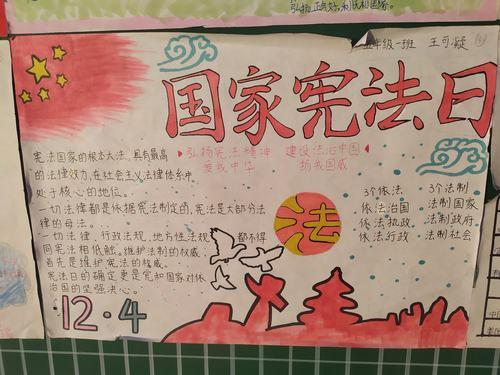 弘扬正能量,利民和国家。
五年级一班 王可凝
国家宪法日
宪法国家的根本大法,具有最高
的法律效力,在社会主义法律体系中
处于核心的地位。
一切法律都是依据宪法制定的,宪法是大部分法
律的母法。
一切法律,行政法规,地方性法规 都不得
同宪法相低触。维护法制的权威,
首先是维护宪法的权威。
宪法日的确定更是党和国家对依
治国的坚强决心。
12·4
弘扬宪法精神 建设法治中国
爱我中华 扬我国威
法
3个依法
依法治国
依法执政
依法行政
3个法制
法制国家
法制政府
法制社会